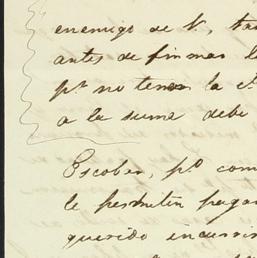 enemigo de V, tra
antes de firmar l
pr no tener la cl
a la suma debe
Escobar, po com
le permiten pagar
querido incurrir